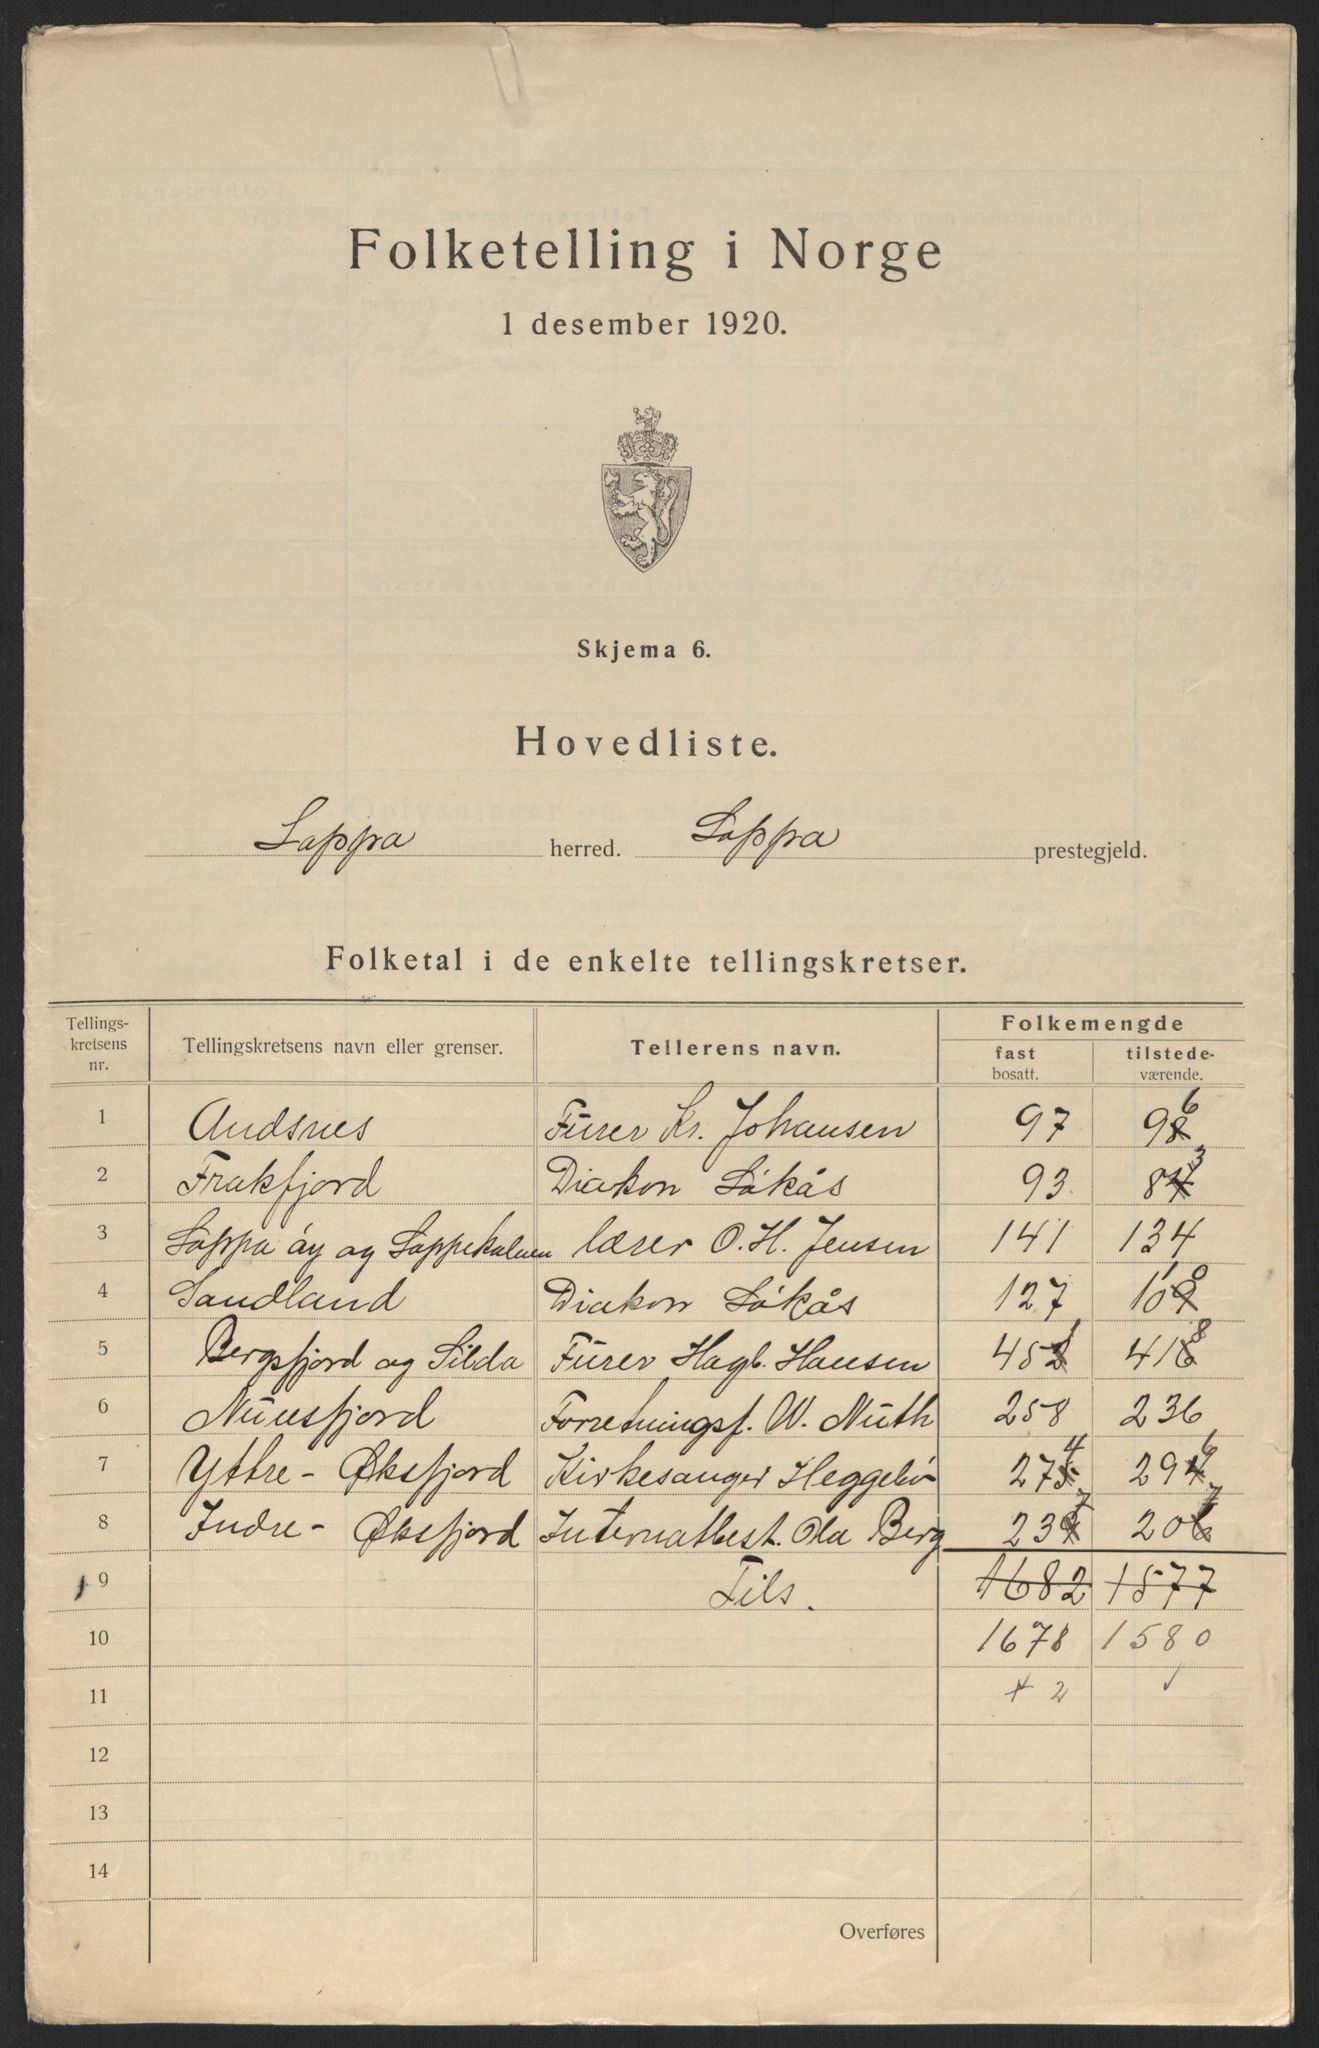 Folketelling i Norge
1 desember 1920.
Skjema 6.
Hovedliste.
Loppa herred. Loppa prestegjeld.
Folketal i de enkelte tellingskretser.
Tellings-kretsens nr. Tellingskretsens navn eller grenser. Tellerens navn. Folkemengde fast bosatt. tilstede-værende.
1 Andsnes Fürer Kr. Johansen 97 96
2 Frakfjord Diakon Løkås 93 83
3 Loppa øy og Loppekalven lærer O. H. Jensen 141 134
4 Sandland Diakon Løkås 127 110
5 Bergsfjord og Silda Fürer Hagb. Hansen 451 418
6 Nuvsfjord Forretningsf. W. Nuth 258 236
7 Yttre- Øksfjord Kirkesanger Heggelu 274 296
8 Indre- Øksfjord Internatbest. Ola Berg 237 207
9 Tils. 1682 1577
10 1678 1580
11 + 2 ✓
12
13
14
Overføres